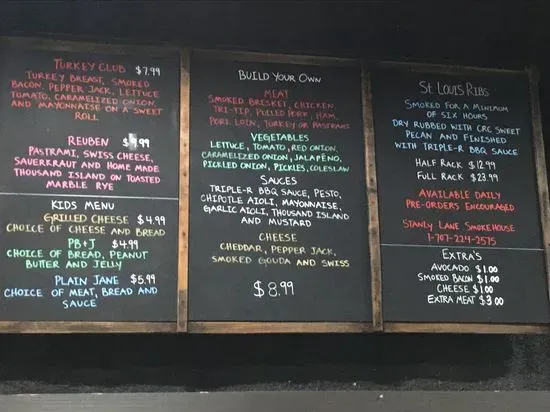 TURKEY CLUB $7.99
TURKEY BREAST, SMOKED
BACON, PEPPER JACK, LETTUCE
TOMATO, CARAMELIZED ONION
AND MAYONNAISE ON A SWEET
ROLL
REUBEN
PASTRAMI, SWISS CHEESE,
SAUERKRAUT AND HOME MADE
THOUSAND ISLAND ON TOASTED
MARBLE RYE
KIDS MENU
GRILLED CHEESE $4.99
CHOICE OF CHEESE AND BREAD
PB+J $4.99
CHOICE OF BREAD, PEANUT
BUTTER AND JELLY
PLAIN JANE $5.99
CHOICE OF MEAT, BREAD AND
SAUCE
BUILD YOUR OWN
MEAT
SMOKED BRISKET, CHICKEN,
TRI-TIP, PULLED PORK, HAM,
PORK LOIN, TURKEY OR PASTRAMI
VEGETABLES
LETTUCE, TOMATO, RED ONION,
CARAMELIZED ONION, JALAPEÑO,
PICKLED ONION, PICKLES, COLESLAW
SAUCES
TRIPLE-R BBQ SAUCE, PESTO,
CHIPOTLE AIOLI, MAYONNAISE,
GARLIC AIOLI, THOUSAND ISLAND
AND MUSTARD
CHEESE
CHEDDAR, PEPPER JACK,
SMOKED GOUDA AND SWISS
$8.99
ST LOUIS RIBS
SMOKED FOR A MINIMUM
OF SIX HOURS
DRY RUBBED WITH CRC SWEET
PECAN AND FINISHED
WITH TRIPLE-R BBQ SAUCE
HALF RACK $12.99
FULL RACK $23.99
AVAILABLE DAILY
PRE-ORDERS ENCOURAGED
STANLY LANE SMOKEHOUSE
1-707-224-2575
EXTRA'S
AVOCADO $1.00
SMOKED BACON $1.00
CHEESE $1.00
EXTRA MEAT $3.00